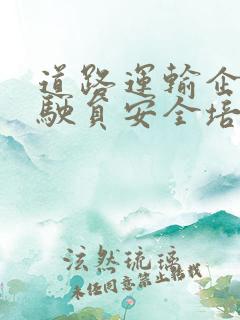 道路運輸企
駛員安全培
泫然琉璃
未经同意禁止转载